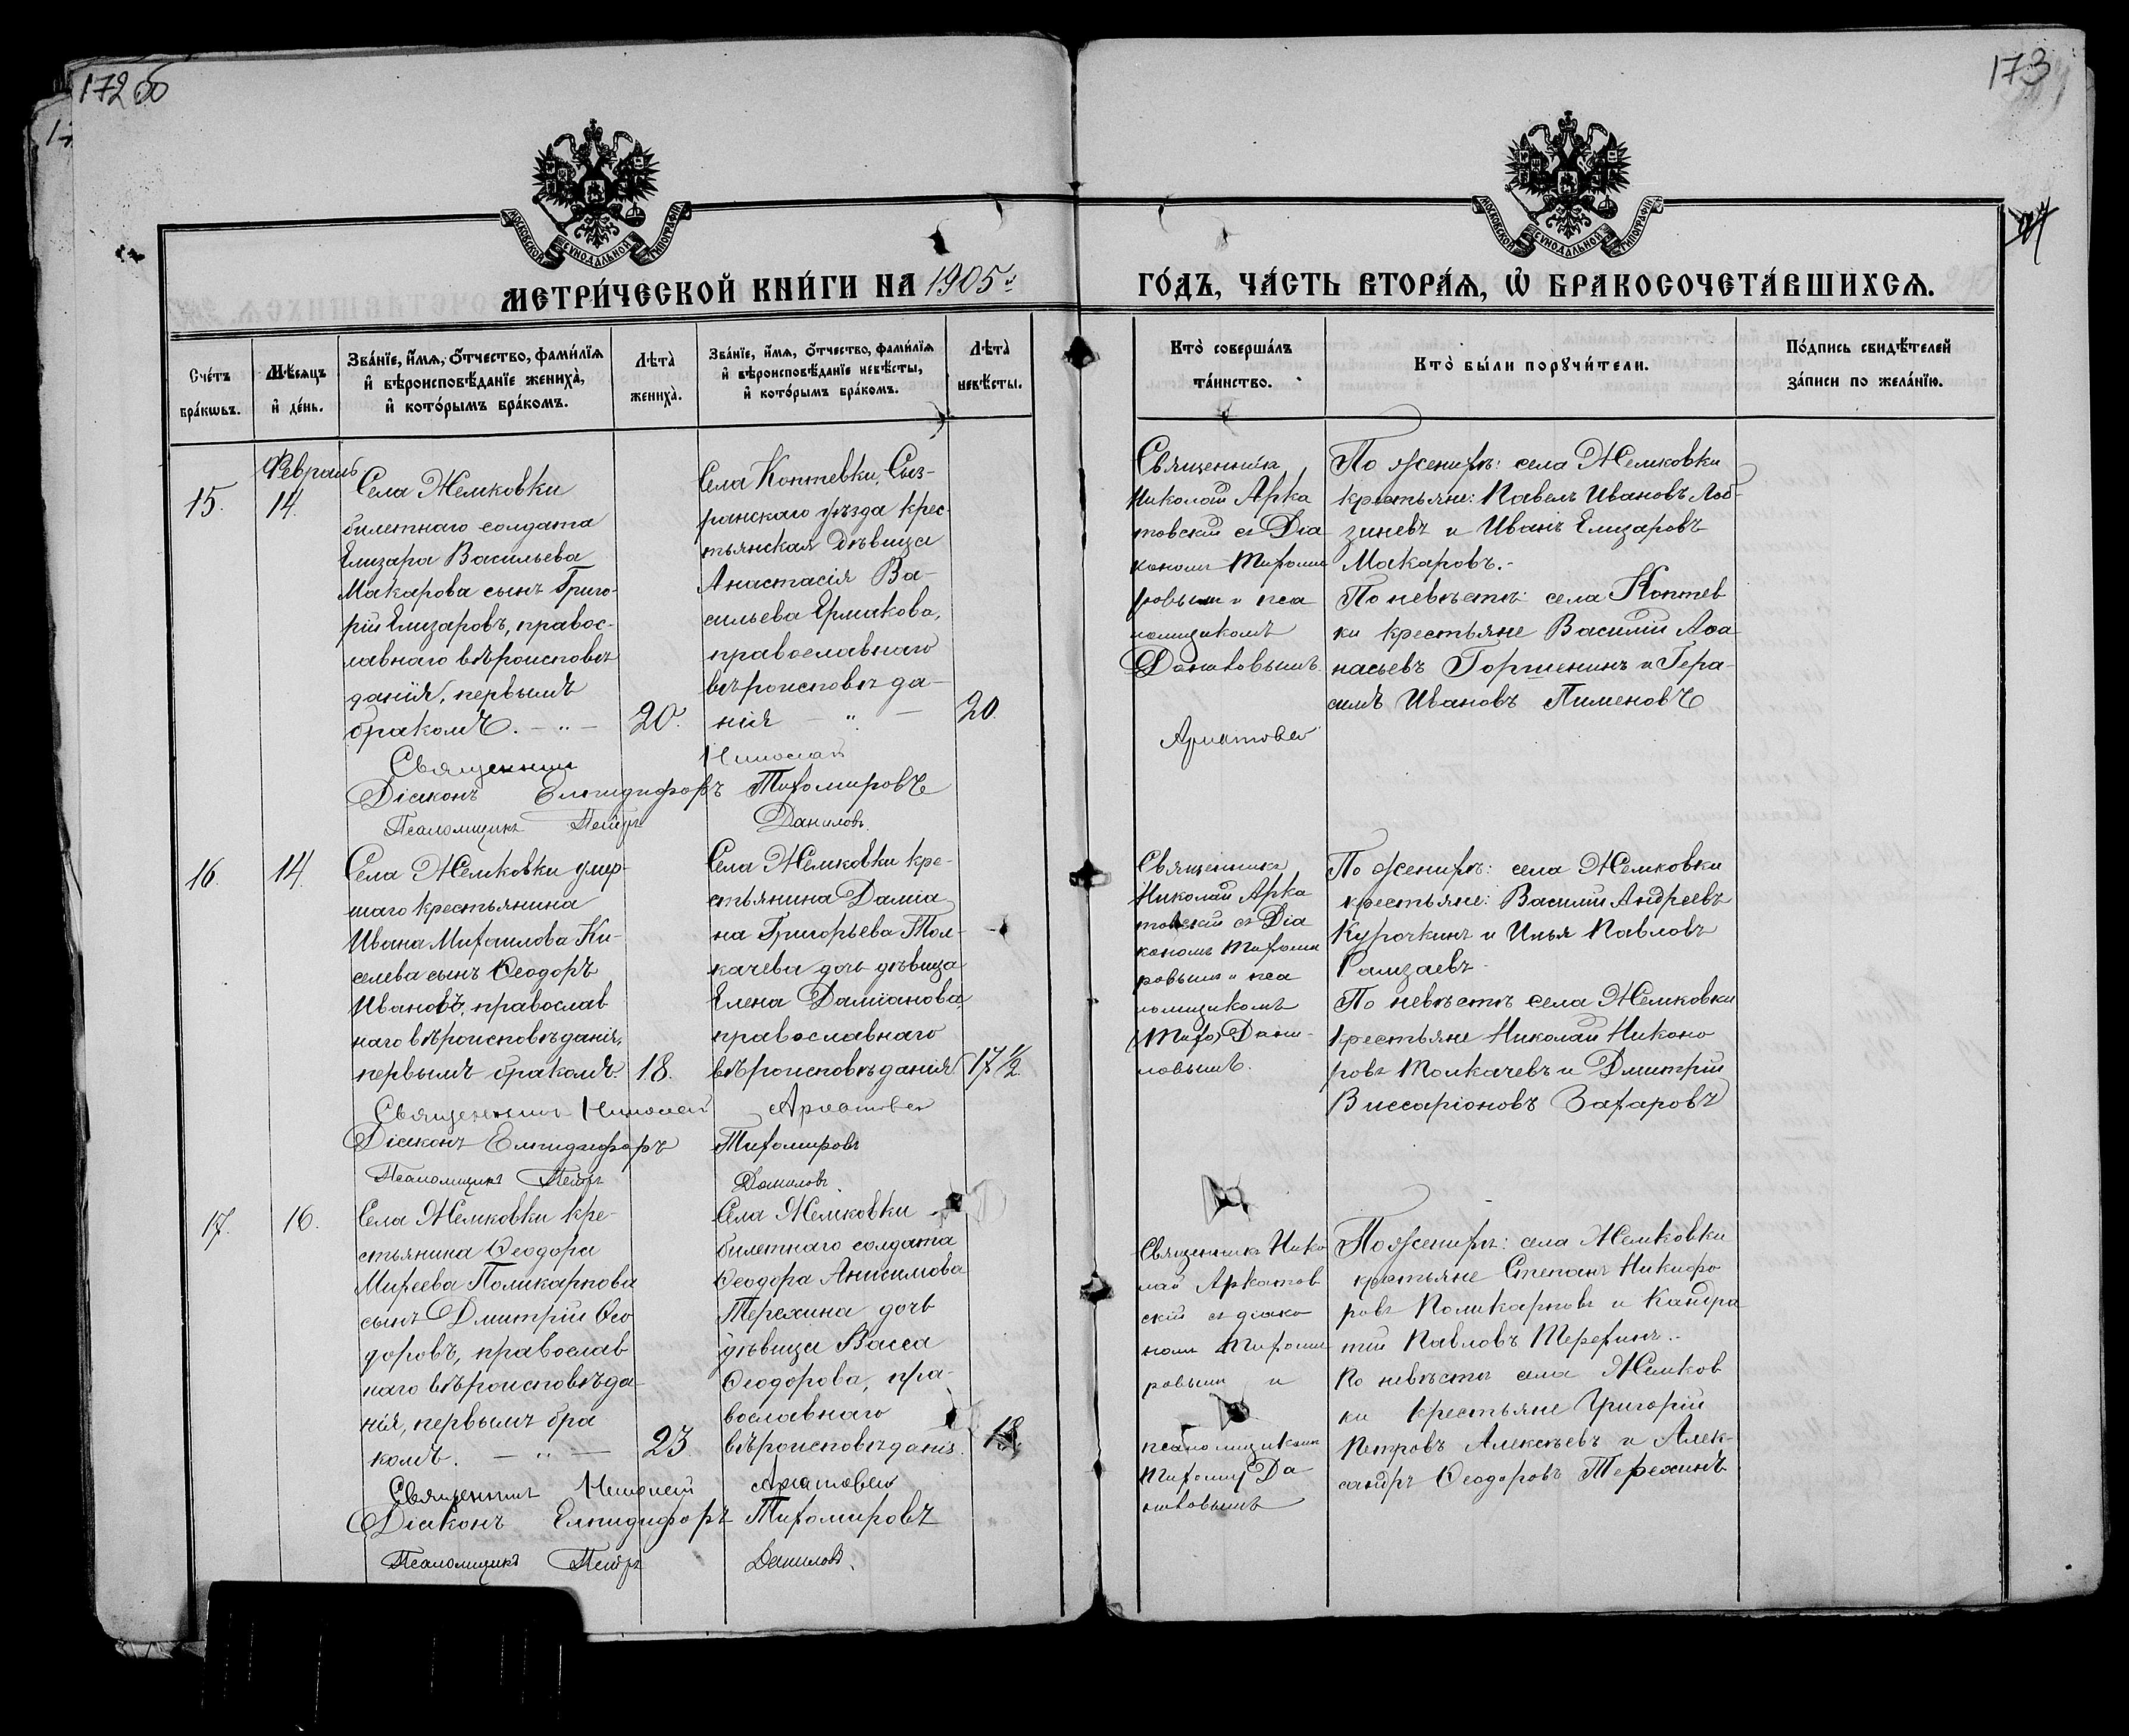 172 об
173
МОСКОВСКОЙ СУНОДАЛЬНОЙ ТИПОГРАФІИ
МОСКОВСКОЙ СУНОДАЛЬНОЙ ТИПОГРАФІИ
МЕТРИ́ЧЕСКОЙ КНИ́ГИ НА 1905 й
ГО́ДЪ, ЧА́СТЬ ВТОРА́Я, Ѡ БРАКОСОЧЕТА́ВШИХСЯ.
Сче́тъ бра́кѡвъ.
Мѣ́сяцъ и де́нь.
Зва́нїе, и́мя, ѻ҆́тчество, фами́лїя и вѣроисповѣ́данїе жениха̀, и кото́рымъ бра́комъ.
Лѣта̀ жениха̀.
Зва́нїе, и́мя, ѻ҆́тчество, фами́лїя и вѣроисповѣ́данїе невѣ́сты, и кото́рымъ бра́комъ.
Лѣта̀ невѣ́сты.
Кто̀ соверша́лъ та́инство.
Кто̀ бы́ли порꙋчи́тели.
По́дпись свидѣ́телей за́писи по жела́нїю.
15.
Февраль
14.
Села Жемковки
билетнаго солдата
Елизара Васильева
Макарова сынъ Григо-
рій Елизаровъ, правос-
лавнаго вѣроисповѣ
данія, первымъ
бракомъ. — " —
20.
Села Коптевки, Сыз-
ранскаго уѣзда крес-
тьянская дѣвица
Анастасія Ва-
сильева Ермакова,
православнаго
вѣроисповѣда-
нія — " —
20.
Священникъ
Николай Арка
товскій съ Діа
кономъ Тихоми
ровымъ и пса
ломщикомъ
Даниловымъ.
По женихѣ: села Жемковки
крестьяне: Павелъ Ивановъ Лоб-
зиневъ и Иванъ Елизаровъ
Макаровъ.-
По невѣстѣ: села Коптев
ки крестьяне Василій Аѳа
насьевъ Горшенинъ и Гера-
симъ Ивановъ Пименовъ
Священникъ Николай Аркатовскій
Діаконъ Елпидифоръ Тихомировъ
Псаломщикъ Петръ Даниловъ.
16.
14.
Села Жемковки умер-
шаго крестьянина
Ивана Михаилова Ки-
селева сынъ Ѳеодоръ
Ивановъ, православ
наго вѣроисповѣданія,
первымъ бракомъ.
18.
Села Жемковки кре-
стьянина Даміа
на Григорьева Тол-
качева дочь дѣвица
Елена Даміанова,
православнаго
вѣроисповѣданія
17 1/2.
Священникъ
Николай Арка
товскій съ Діа
кономъ Тихоми
ровымъ и пса
ломщикомъ
(Тихо) Дани-
ловымъ.
По женихѣ: села Жемковки
крестьяне: Василій Андреевъ
Курочкинъ и Илья Павловъ
Рамзаевъ.
По невѣстѣ села Жемковки
крестьяне Николай Никоно
ровъ Толкачевъ и Дмитрій
Виссаріоновъ Захаровъ
Священникъ Николай Аркатовскій
Діаконъ Елпидифоръ Тихомировъ
Псаломщикъ Петръ Даниловъ.
17.
16.
Села Жемковки кре-
стьянина Ѳеодора
Михеева Поликарпова
сынъ Дмитрій Ѳео
доровъ, православ
наго вѣроисповѣда-
нія, первымъ бра
комъ. — " —
23.
Села Жемковки
билетнаго солдата
Ѳеодора Анисимова
Терехина дочь
дѣвица Васса
Ѳеодорова, пра-
вославнаго
вѣроисповѣданія.
18.
Священникъ Нико
лай Аркатов
скій съ діако
номъ Тихоми
ровымъ и
псаломщикомъ
Тихомир Да
ниловымъ
По женихѣ: села Жемковки
крестьяне Степанъ Никифо
ровъ Поликарповъ и Кандра
тій Павловъ Терехинъ.-
По невѣстѣ села Жемков
ки крестьяне Григорій
Петровъ Алексѣевъ и Алек-
сандръ Ѳеодоровъ Терехинъ
Священникъ Николай Аркатовскій
Діаконъ Елпидифоръ Тихомировъ
Псаломщикъ Петръ Даниловъ.